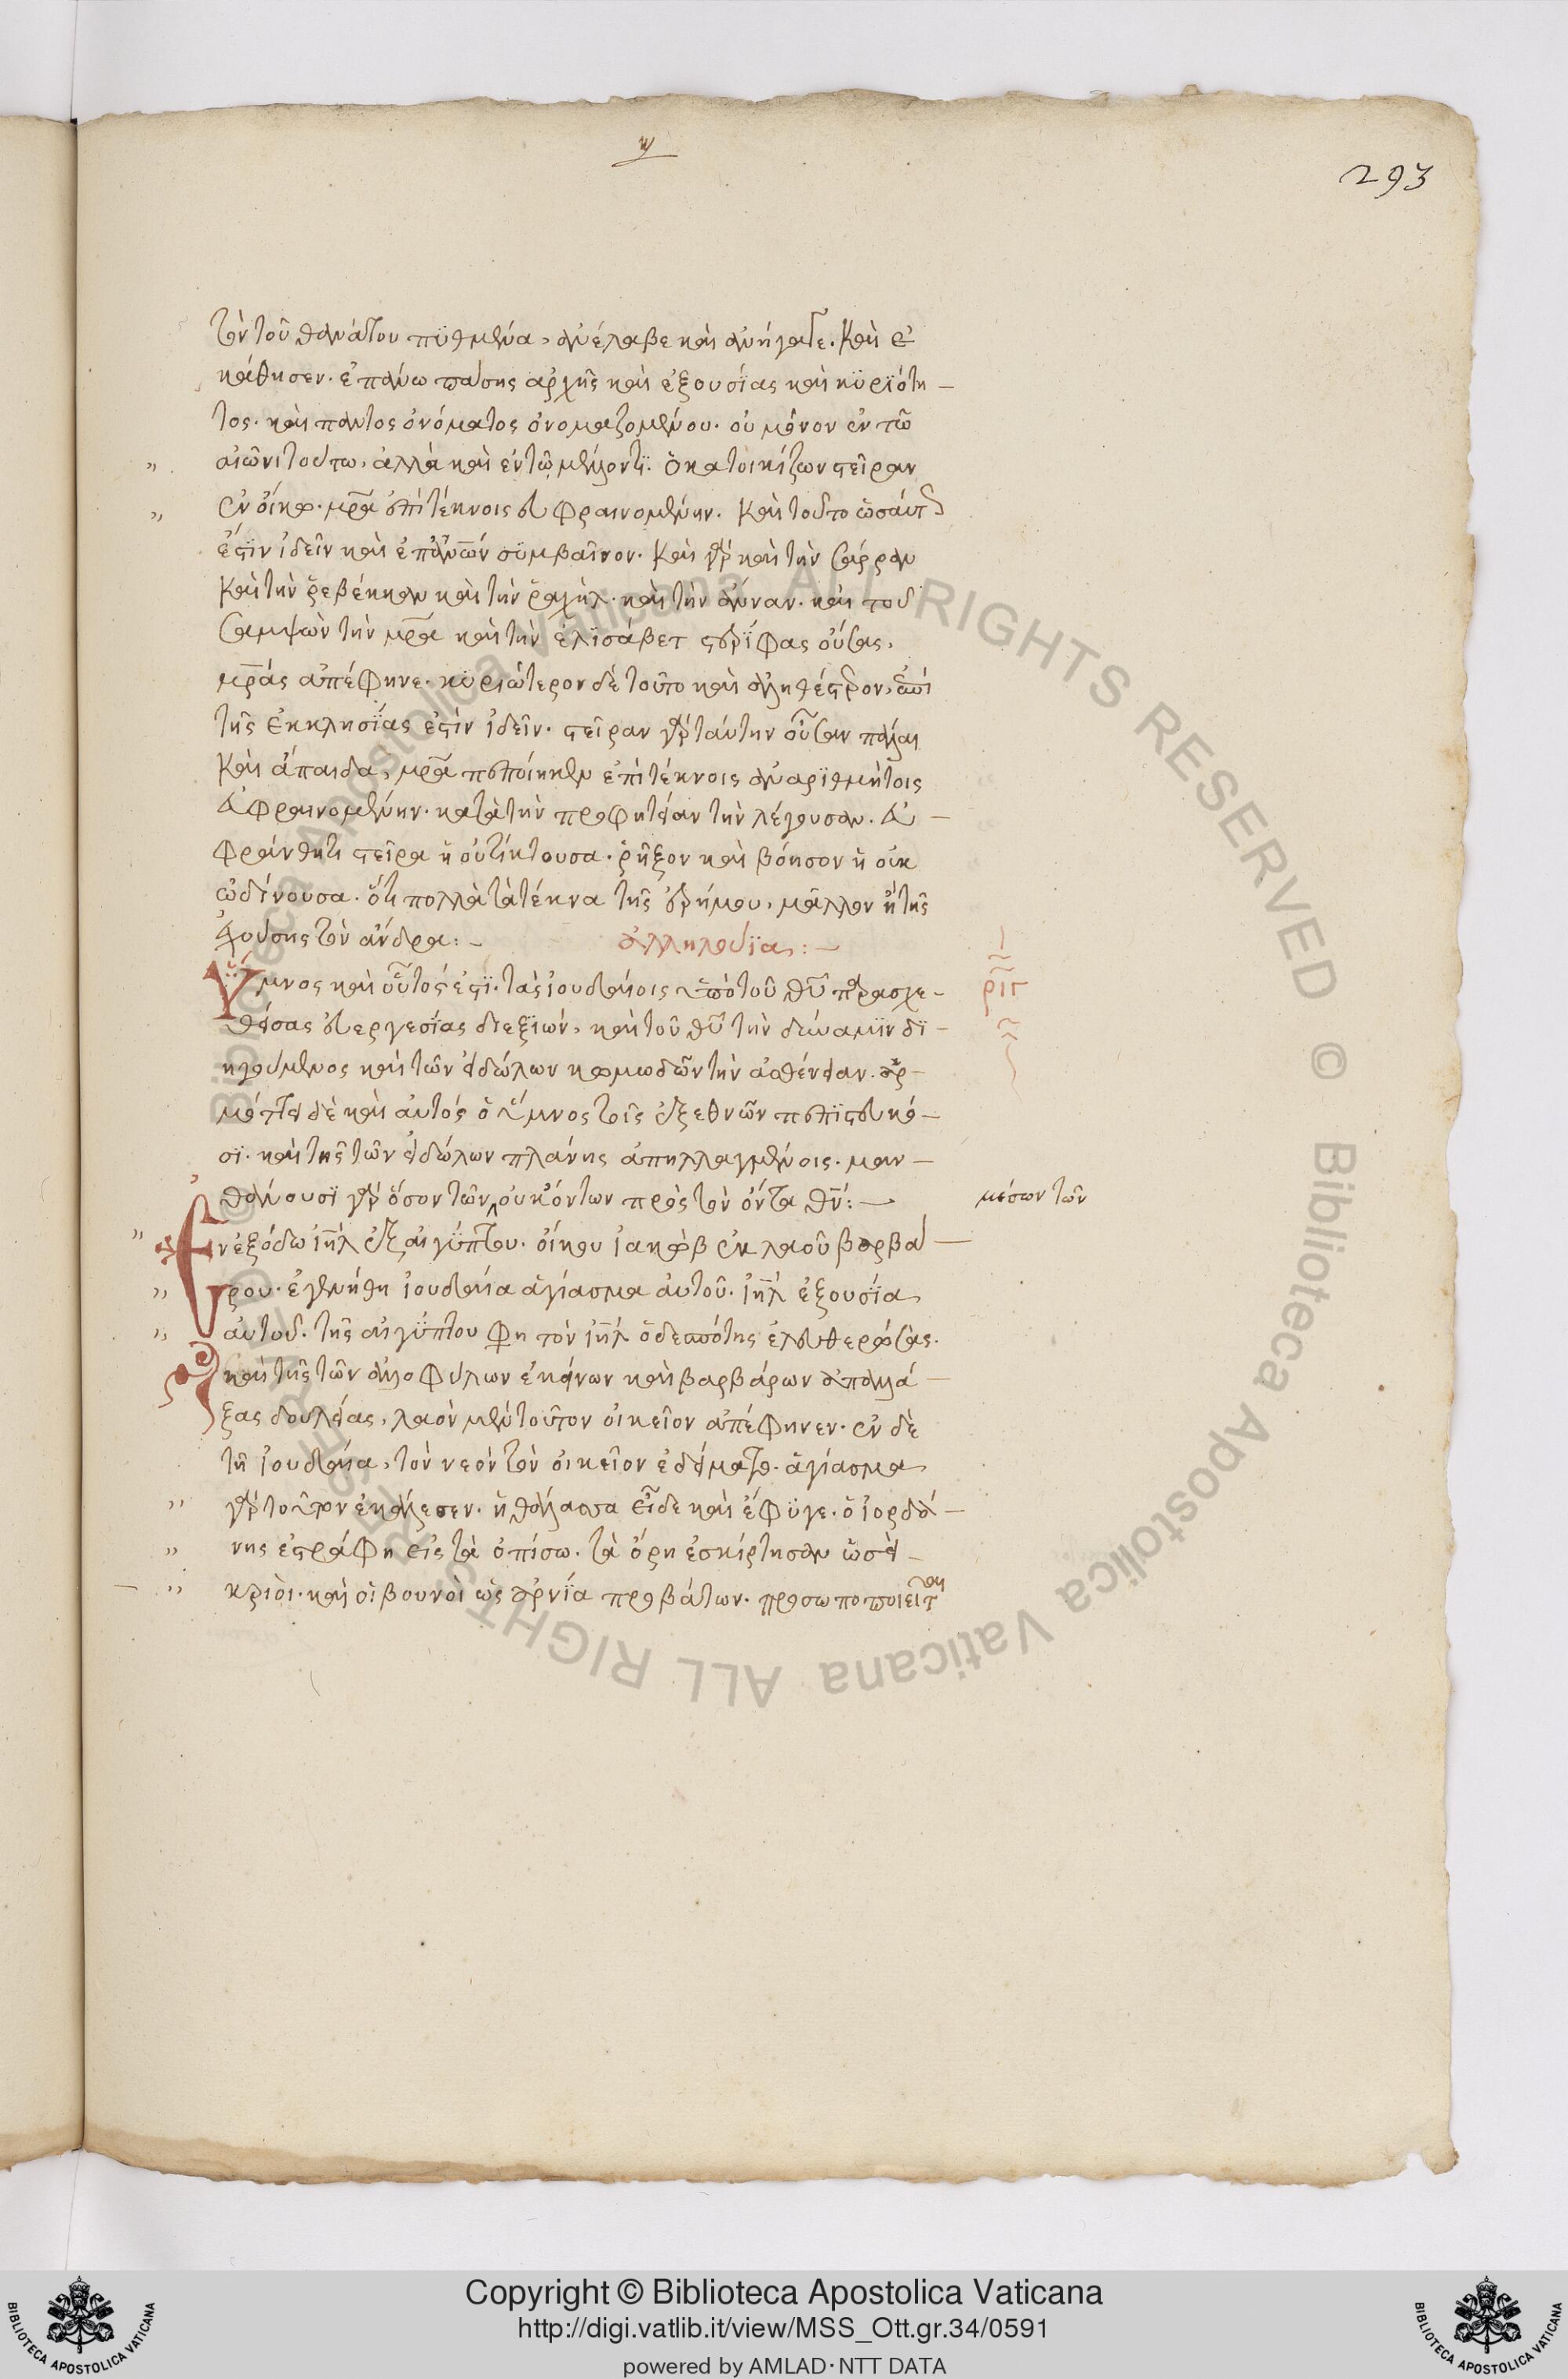 293
τὸν τοῦ θανάτου πϋθμένα, ἀνέλαβε καὶ ἀνήγαγε. Καὶ ἐ
κάθησεν. ἐπάνω πάσης ἀρχῆς καὶ ἐξουσίας καὶ κϋριότη
τος. καὶ παντὸς ὀνόματος ὀνομαζομένου. οὐ μόνον ἐν τῶ
αἰῶνι τούτω, ἀλλὰ καὶ ἐν τῶ μέλλοντϊ. ὁ κατοικίζων στεῖραν
ἐν οἴκω. μρ̅α ἐπὶ τέκνοις εὐφραινομένην. Καὶ τοῦτο ὡσαύτως
ἐστϊν ἰδεῖν καὶ ἐπ' ἀν̅ω̅ν συμβαῖνον. Καὶ γὰρ καὶ τὴν σάρραν
Καὶ τὴν ῥεβέκκαν καὶ τὴν ῥαχὴλ. καὶ τὴν ἄνναν. καὶ τοῦ
σαμψὼν τὴν μρ̅α καὶ τὴν ἐλϊσάβετ στερίφας οὔσας,
μρ̅άς ἀπέφηνε. κϋριώτερον δὲ τοῦτο καὶ ἀληθέστερον, ἐπὶ
τῆς ἐκκλησίας ἐστὶν ἰδεῖν. στεῖραν γὰρ ταύτην οὖσαν πάλαι
Καὶ ἄπαιδα, μρ̅α πεποίηκεν ἐπὶ τέκνοις ἀναρϊθμήτοις
εὐφραινομένην. κατὰ τὴν προφητείαν τὴν λέγουσαν. εὐ
φράνθητι στεῖρα ἡ οὐ τίκτουσα. ῥῆξον καὶ βόησον ἡ οὐκ
ὠδίνουσα. ὅτι πολλὰ τὰ τέκνα τῆς ἐρήμου, μᾶλλον ἢ τῆς
ἐχούσης τὸν ἄνδρα:
ἀλληλούϊα:
ριγ
Ὕμνος καὶ οὗτός ἐστϊ. τὰς ἰουδαίοις ὑπὸ τοῦ θυ̅ παρασχε
θείσας εὐεργεσίας διεξιών, καὶ τοῦ θυ̅ τὴν δύναμϊν δϊ
ηγούμενος καὶ τῶν εἰδώλων κωμωδῶν τὴν ἀσθένειαν. ἁρ
μόττει δὲ καὶ αὐτός ὁ ὕμνος τοῖς ἐξ ἐθνῶν πεπϊστευκό
σϊ. καὶ τῆς τῶν εἰδώλων πλάνης ἀπηλλαγμένοις. μαν
θάνουσϊ γὰρ ὅσον τῶν οὐκ ὄντων πρὸς τὸν ὄντα θν̅:
μέσων τῶν
Ἐν ἐξόδω ιη̅λ ἐξ αἰγύπτου. οἴκου ἰακὼβ ἐκ λαοῦ βαρβά
ρου. ἐγενήθη ἰουδαία ἁγίασμα αὐτοῦ. ιη̅λ ἐξουσϊα
αὐτοῦ. τῆς αἰγύπτου φη τὸν ιη̅λ ὁ δεσπότης ἐλευθερώσας.
καὶ τῆς τῶν ἀλλοφύλων ἐκείνων καὶ βαρβάρων ἀπαλλά
ξας δουλείας, λαὸν μὲν τοῦτον οἰκεῖον ἀπέφηνεν. ἐν δὲ
τῆ ἰουδαία, τὸν νεὸν τὸν οἰκεῖον ἐδείματο. ἁγίασμα
γὰρ τοῦτον ἐκάλεσεν. ἡ θάλασσα εἶδε καὶ ἔφϋγε. ὁ ἰορδά
νης ἐστράφη εἰς τὰ ὀπίσω. τὰ ὄρη ἐσκίρτησαν ὡσεὶ
κριοὶ. καὶ οἱ βουνοὶ ὡς ἀρνία προβάτων. προσωποποιεῖται
Copyright © Biblioteca Apostolica Vaticana
http://digi.vatlib.it/view/MSS_Ott.gr.34/0591
powered by AMLAD·NTT DATA
BIBLIOTECA APOSTOLICA VATICANA
BIBLIOTECA APOSTOLICA VATICANA
© Biblioteca Apostolica Vaticana ALL RIGHTS RESERVED © Biblioteca Apostolica Vaticana ALL RIGHTS RESERVED